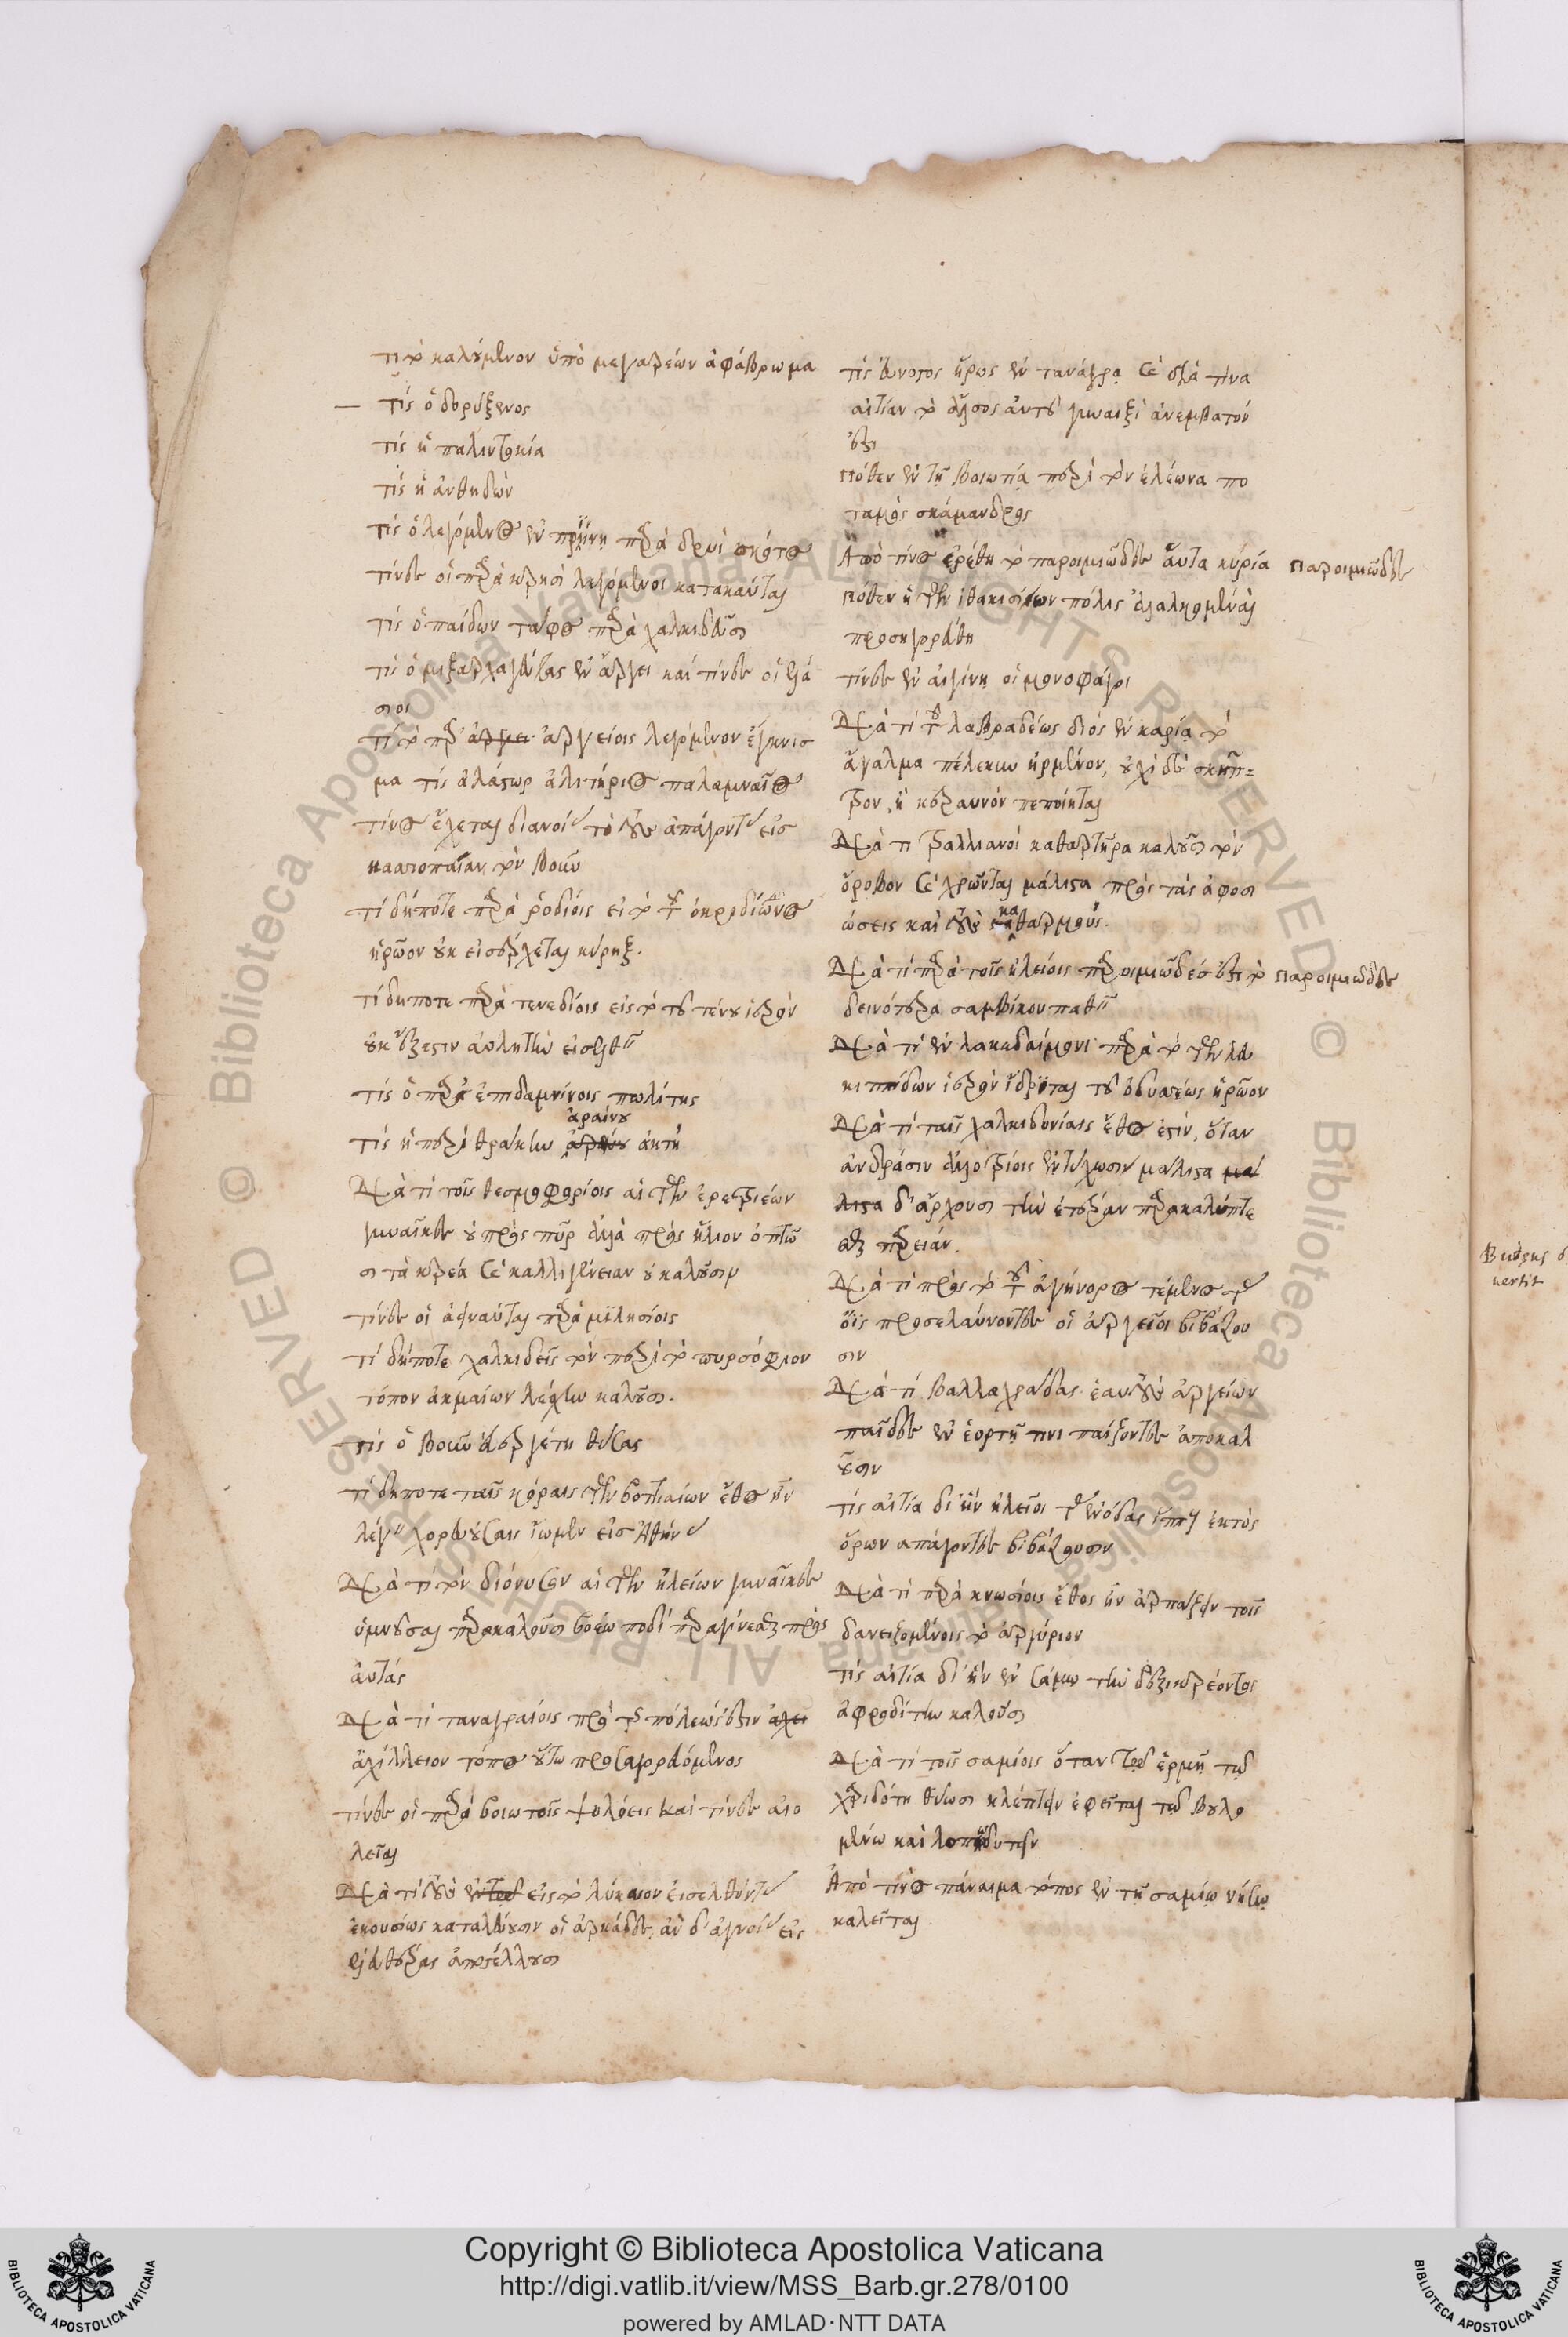 τὶ τὸ καλούμενον ὑπὸ μεγαρέων ἀφάβρωμα
τίς ὁ δορύξενος
τίς ἡ παλιντοκία
τίς ἡ ἀνθηδὼν
τίς ὁ λεγόμενος ἐν πριήνῃ παρὰ δρυὶ σκότος
τίνες οἱ παρὰ κρησὶ λεγόμενοι κατακαῦται
τίς ὁ παίδων τάφος παρὰ χαλκιδεῦσι
τίς ὁ μιξαρχαγέτας ἐν ἄργει καὶ τίνες οἱ ἐλά
σιοι
τί τὸ παρ' ἀργείοις λεγόμενον ἔγκνισ
μα τίς ἀλάστωρ ἀλιτήριος παλαμναῖος
τίνος ἔχεται διανοίας τὸ τοὺς ἀπάγοντας εἰς
τὴν βοῦν
τί δήποτε παρὰ ῥοδίοις εἰς τὸ τοῦ ὀκριδίωνος
ἡρῶον οὐκ εἰσέρχεται κῆρυξ.
τί δήποτε παρὰ τενεδίοις εἰς τὸ τοῦ τένου ἱερὸν
οὐκ ἔξεστιν αὐλητὴν εἰσελθεῖν
τίς ὁ παρὰ ἐπιδαμνίοις πωλήτης
ἀραίνου
τίς ἡ περὶ θράκην ἀκτή
Διὰ τί τοῖς θεσμοφορίοις αἱ τῶν ἐρετριέων
γυναῖκες οὐ πρὸς πῦρ ἀλλὰ πρὸς ἥλιον ὀπτῶ
σι τὰ κρέα καὶ καλλιγένειαν οὐ καλοῦσιν
τίνες οἱ ἀειναῦται παρὰ μιλησίοις
τί δήποτε χαλκιδεῖς τὸν περὶ τὸ πυρσόφιον
τόπον ἀκμαίων λέσχην καλοῦσι.
τίς ὁ βοῦν εὐεργέτῃ θύσας
τί δήποτε ταῖς κόραις τῶν βοττιαίων ἔθος ἦν
λέγειν χορευούσαις ἴωμεν εἰς Ἀθήνας
Διὰ τί τὸν διόνυσον αἱ τῶν ἠλείων γυναῖκες
ὑμνοῦσαι παρακαλοῦσι βοέῳ ποδὶ παραγίνεσθαι πρὸς
αὐτάς
Διὰ τί ταναγραίοις πρὸ τῆς πόλεώς ἐστιν
ἀχίλλειον τόπος οὕτω προσαγορευόμενος
τίνες οἱ παρὰ βοιωτοῖς ψολόεις καὶ τίνες αἰο
λεῖαι
Διὰ τί τοὺς εἰς τὸ λύκαιον εἰσελθόντας
ἑκουσίως καταλεύουσιν οἱ ἀρκάδες, ἂν δ' ἀγνοίας εἰς
ἐλευθερὰς ἀποστέλλουσι
τίς εὔνοστος ἥρως ἐν τανάγρᾳ καὶ διὰ τίνα
αἰτίαν τὸ ἄλσος αὐτοῦ γυναιξὶ ἀνεμβατόν
ἐστι
πόθεν ἐν τῇ βοιωτίᾳ περὶ τὸν ἐλέωνα πο
ταμὸς σκάμανδρος
Ἀπὸ τίνος ἐρέθη τὸ παροιμιῶδες αὕτα κυρία παροιμιῶδες
πόθεν ἡ τῶν ἰθακησίων πόλις ἀλαλκομεναὶ
προσηγορεύθη
τίνες ἐν αἰγίνῃ οἱ μονοφάγοι
Διὰ τί τοῦ λαβραδέως διός ἐν καρίᾳ τὸ
ἄγαλμα πέλεκυν ἠρμένον, οὐχὶ δὲ σκῆπ=
τρον, ἢ κεραυνόν πεποίηται
Διὰ τι τραλλιανοὶ καθαρτῆρα καλοῦσι τὸν
ὄροβον καὶ χρῶνται μάλιστα πρὸς τὰς ἀφοσι
ώσεις καὶ τοὺς καθαρμούς.
Διὰ τί παρὰ τοῖς ἠλείοις παροιμιῶδές ἐστι τὸ παροιμιῶδες
δεινότερα σαμβίκου παθεῖν
Διὰ τί ἐν λακεδαίμονι παρὰ τὸ τῶν λευ
κιππίδων ἱερὸν ἵδρυται τοῦ ὀδυσσέως ἡρῶον
Διὰ τί ταῖς χαλκηδονίαις ἔθος ἐστίν, ὅταν
ἀνδράσιν ἀλλοτρίοις ἐντύχωσιν μάλιστα μά
λιστα δ' ἄρχουσι τὴν ἑτέραν παρακαλύπτε
σθαι παρειάν.
Διὰ τί πρὸς τὸ τοῦ ἀγήνορος τέμενος τὰς
ὄϊς προσελαύνοντες οἱ ἀργεῖοι βιβάζου
σιν
Διὰ τί βαλλαχράδας ἑαυτοὺς ἀργείων
παῖδες ἐν ἑορτῇ τινι παίζοντες ἀποκαλ
οῦσιν
τίς αἰτία δι' ἣν ἠλεῖοι τὰς ἵππους ἐκτὸς
ὅρων ἀπάγοντες βιβάζουσιν
Διὰ τί παρὰ κνωσίοις ἔθος ἦν ἁρπάζειν τοῖς
δανειζομένοις τὸ ἀργύριον
τίς αἰτία δι' ἣν ἐν σάμῳ τὴν δεξικρέοντος
ἀφροδίτην καλοῦσι
Διὰ τί τοῖς σαμίοις ὅταν τῷ ἑρμῇ τῷ
χαριδότῃ θύωσι κλέπτειν ἐφεῖται τῷ βουλο
μένῳ καὶ λωποδυτεῖν
Ἀπὸ τίνος πάναιμα τόπος ἐν τῇ σαμίῳ νήσῳ
καλεῖται.
vertit
Copyright © Biblioteca Apostolica Vaticana
http://digi.vatlib.it/view/MSS_Barb.gr.278/0100
powered by AMLAD·NTT DATA